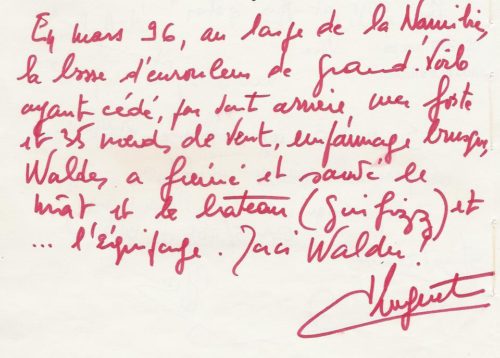 En mars 96, au large de la Namibie,
la bosse d'enrouleur de grand. Voile
ayant cédé, par vent arrière mer forte
et 35 nœuds de vent, empannage brusque,
Walder a freiné et sauvé le
mât et le bateau (Gin fizz) et
... l'équipage. Merci Walder!
Huguet